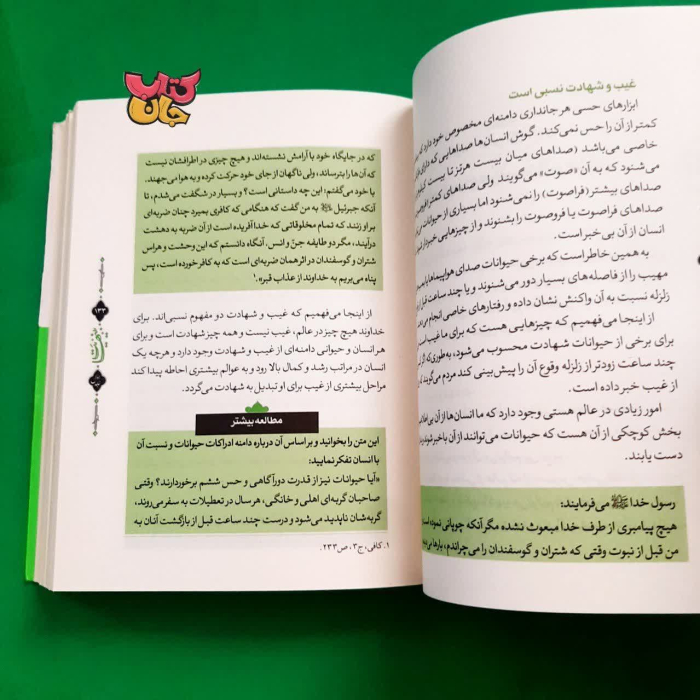 غیب و شهادت نسبی است
ابزارهای حسی هر جانداری دامنه‌ای مخصوص خود دارد که
کمتر از آن را حس نمی‌کند. گوش انسان‌ها صداهایی که دارای
خاصی می‌باشد (صداهای میان بیست هرتز تا بیست
می‌شنود که به آن «صوت» می‌گویند ولی صداهای کمتر
صداهای بیشتر (فراصوت) را نمی‌شنود اما بسیاری از حیوانات
صداهای فراصوت یا فروصوت را بشنوند و از چیزهایی خبردار
انسان از آن بی خبر است.
به همین خاطر است که برخی حیوانات صدای هواپیماها یا
مهیب را از فاصله‌های بسیار دور می‌شنوند و یا چند ساعت قبل از
زلزله نسبت به آن واکنش نشان داده و رفتارهای خاصی انجام
از اینجا می‌فهمیم که چیزهایی هست که برای ما غیب
برای برخی از حیوانات شهادت محسوب می‌شود، به‌طوری‌که
چند ساعت زودتر از زلزله وقوع آن را پیش‌بینی کند مردم می‌گویند
از غیب خبر داده است.
امور زیادی در عالم هستی وجود دارد که ما انسان‌ها از آن
بخش کوچکی از آن هست که حیوانات می‌توانند از آن باخبر شوند
دست یابند.
رسول خدا ﷺ می‌فرمایند:
هیچ پیامبری از طرف خدا مبعوث نشده مگر آنکه چوپانی نموده است
من قبل از نبوت وقتی که شتران و گوسفندان را می‌چراندم، بارها
کتاب
جان
که در جایگاه خود با آرامش نشسته‌اند و هیچ چیزی در اطرافشان نیست
که آن‌ها را بترساند، ولی ناگهان از جای خود حرکت کرده و به هوا می‌جهند.
با خود می‌گفتم: این چه داستانی است؟ و بسیار در شگفت می‌شدم، تا
آنکه جبرئیل به من گفت که هنگامی که کافری بمیرد چنان ضربه‌ای
بر او زنند که تمام مخلوقاتی که خدا آفریده است از آن ضربه به دهشت
درآیند، مگر دو طایفه جنّ و انس، آنگاه دانستم که این وحشت و هراس
شتران و گوسفندان در اثر همان ضربه‌ای است که به کافر خورده است، پس
پناه می‌بریم به خداوند از عذاب قبر».۱
از اینجا می‌فهمیم که غیب و شهادت دو مفهوم نسبی‌اند. برای
خداوند هیچ چیز در عالم، غیب نیست و همه چیز شهادت است و برای
هر انسان و حیوانی دامنه‌ای از غیب و شهادت وجود دارد و هرچه یک
انسان در مراتب رشد و کمال بالا رود و به عوالم بیشتری احاطه پیدا کند
مراحل بیشتری از غیب برای او تبدیل به شهادت می‌گردد.
مطالعه بیشتر
این متن را بخوانید و بر اساس آن درباره دامنه ادراکات حیوانات و نسبت آن
با انسان تفکر نمایید:
«آیا حیوانات نیز از قدرت دورآگاهی و حس ششم برخوردارند؟ وقتی
صاحبان گربه‌ای اهلی و خانگی، هر سال در تعطیلات به سفر می‌روند،
گربه‌شان ناپدید می‌شود و درست چند ساعت قبل از بازگشت آنان به
۱. کافی، ج۳، ص۲۳۳.
۱۳۳